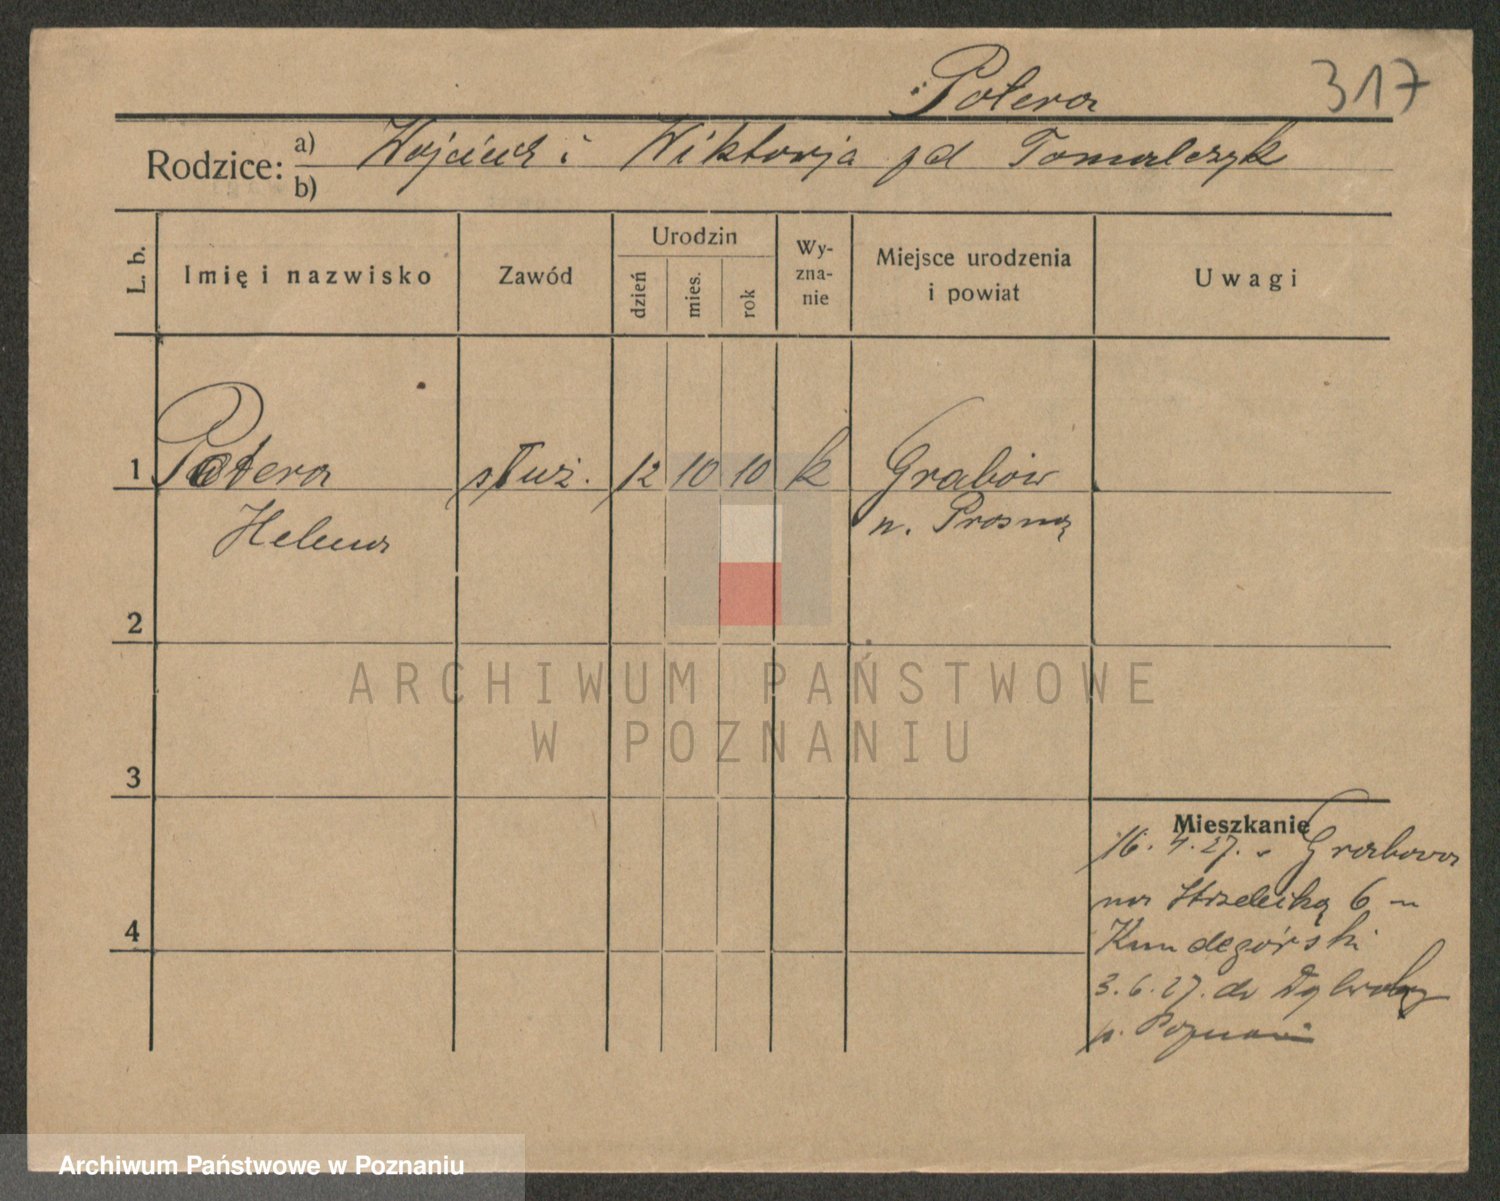 Potera 317
Rodzice: a) Wojciech i Wiktorja zd Tomalczyk
b)
L. b. Imię i nazwisko Zawód Urodzin dzień mies. rok Wy-zna-nie Miejsce urodzenia i powiat Uwagi
1 Potera służ. 12 10 10 k Grabów
Helena n. Prosną
2
ARCHIWUM PAŃSTWOWE
W POZNANIU
3
Mieszkanie
16. 4. 27. z Grabowa
na Strzelecką 6
4
3. 6. 27. do
p. Poznań
Archiwum Państwowe w Poznaniu